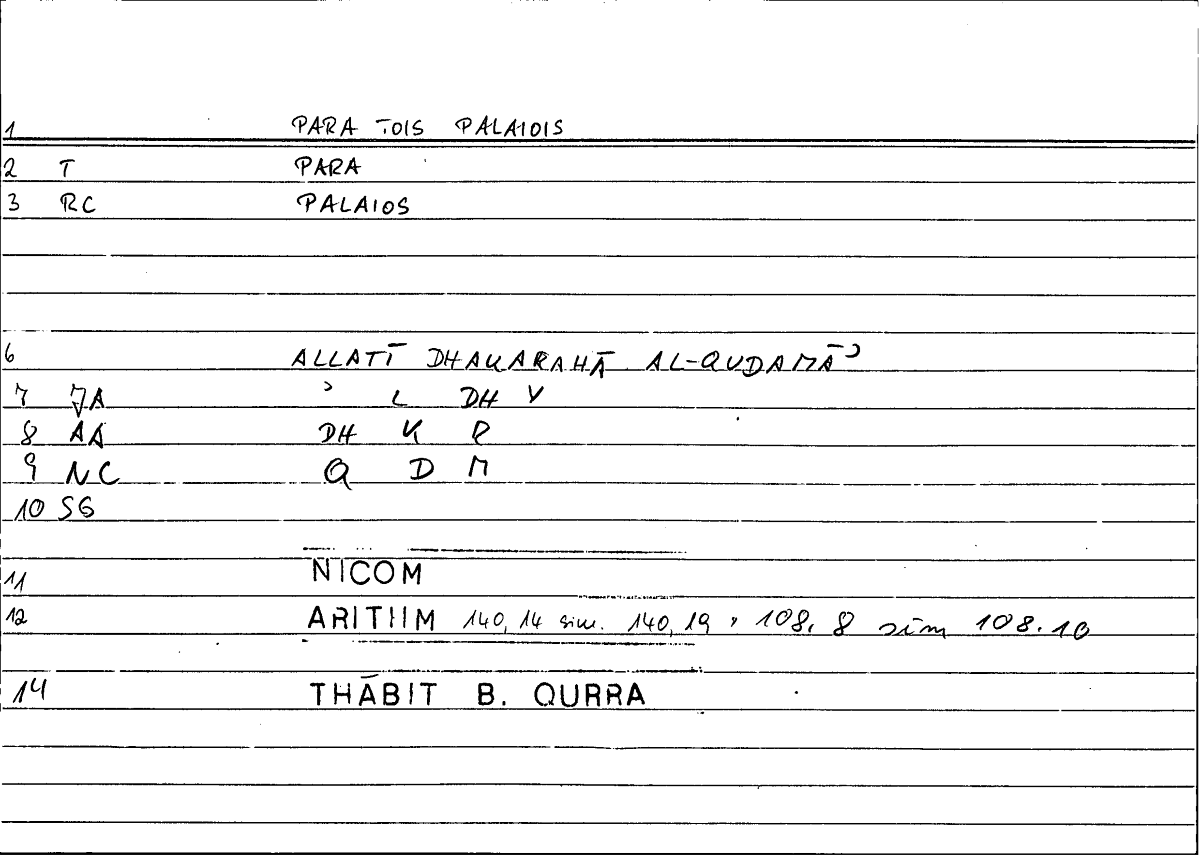 1 PARA TOIS PALAIOIS
2 T PARA
3 RC PALAIOS
6 ALLATĪ DHAKARAHĀ AL-QUDAMĀʾ
7 JA ʾ L DH Y
8 AA DH K R
9 NC Q D M
10 SG
11 NICOM
12 ARITHM 140,14 sim. 140,19 , 108.8 sim 108.10
14 THĀBIT B. QURRA